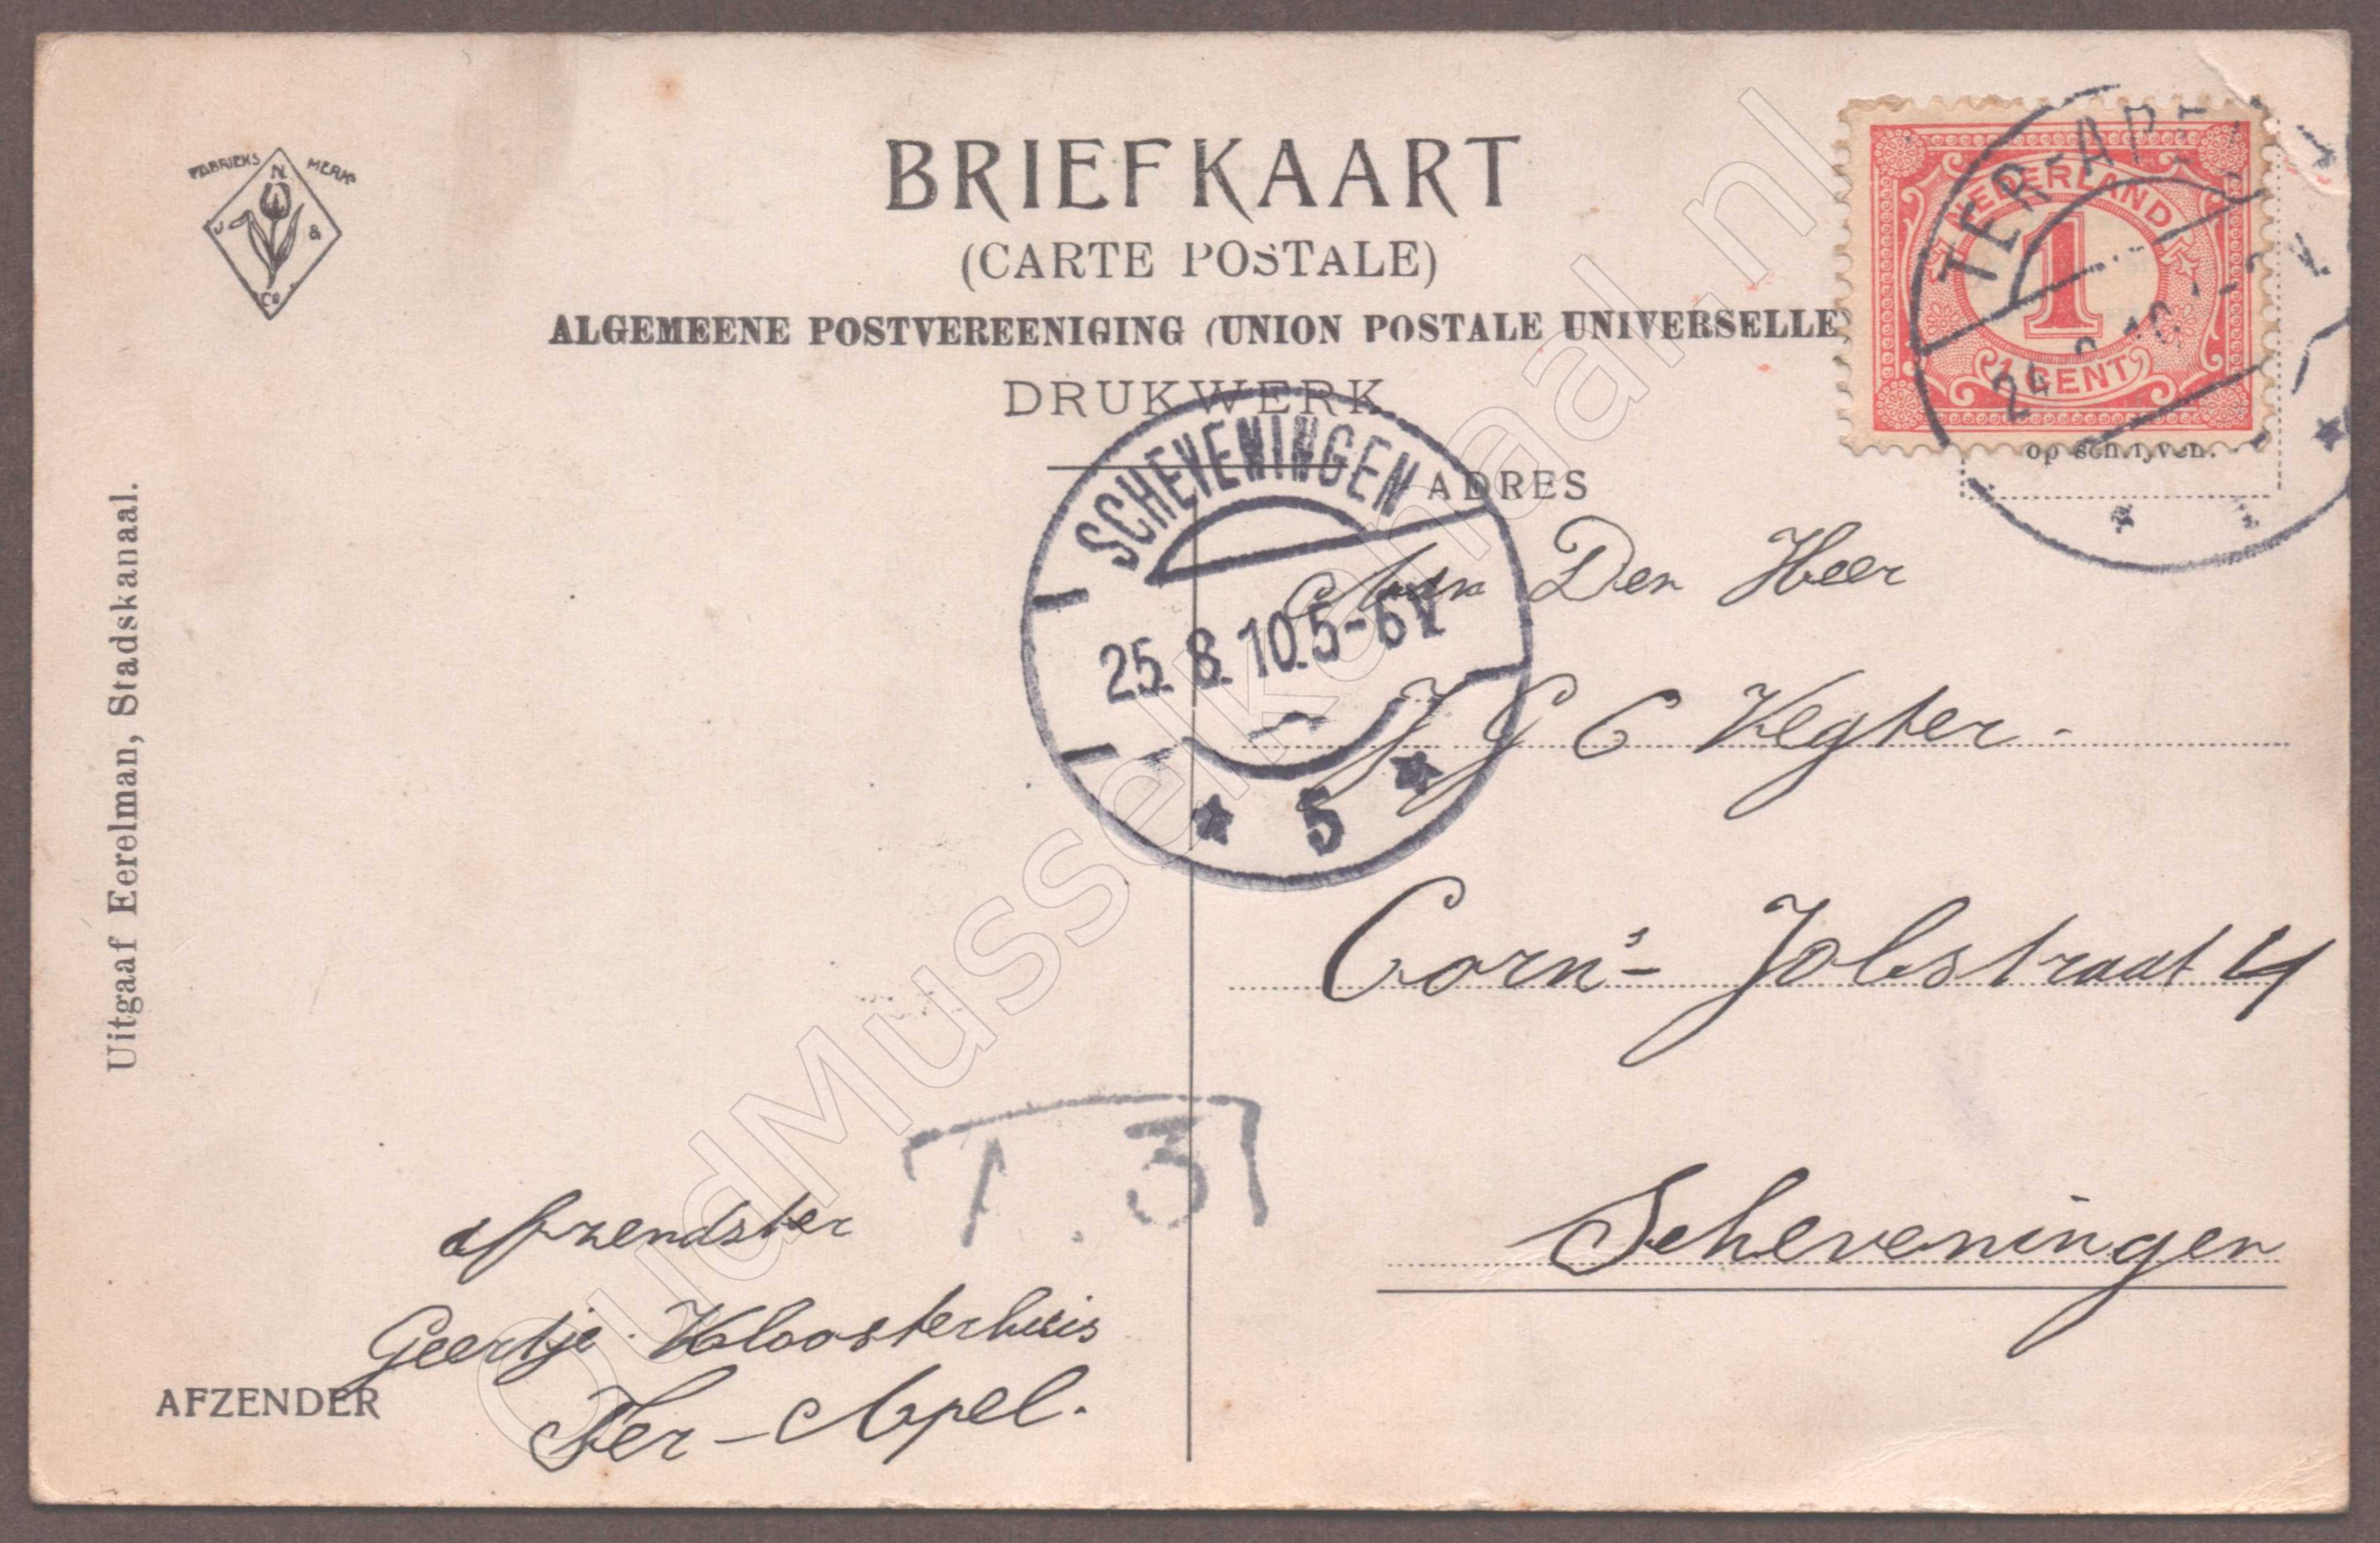 FABRIEKS MERK
N
J &
Co
BRIEFKAART
(CARTE POSTALE)
ALGEMEENE POSTVEREENIGING (UNION POSTALE UNIVERSELLE)
DRUKWERK
ADRES
NEDERLAND
1
1 CENT
TER-APEL
24 8 10
op schrijven.
SCHEVENINGEN
25. 8. 10. 5-6V
5
Aan Den Heer
J G C Vegter
Corns Jolstraat 4
Scheveningen
T. 3
Uitgaaf Eerelman, Stadskanaal.
afzendster
Geertje Kloosterhuis
Ter-Apel.
AFZENDER
OudMusselkanaal.nl